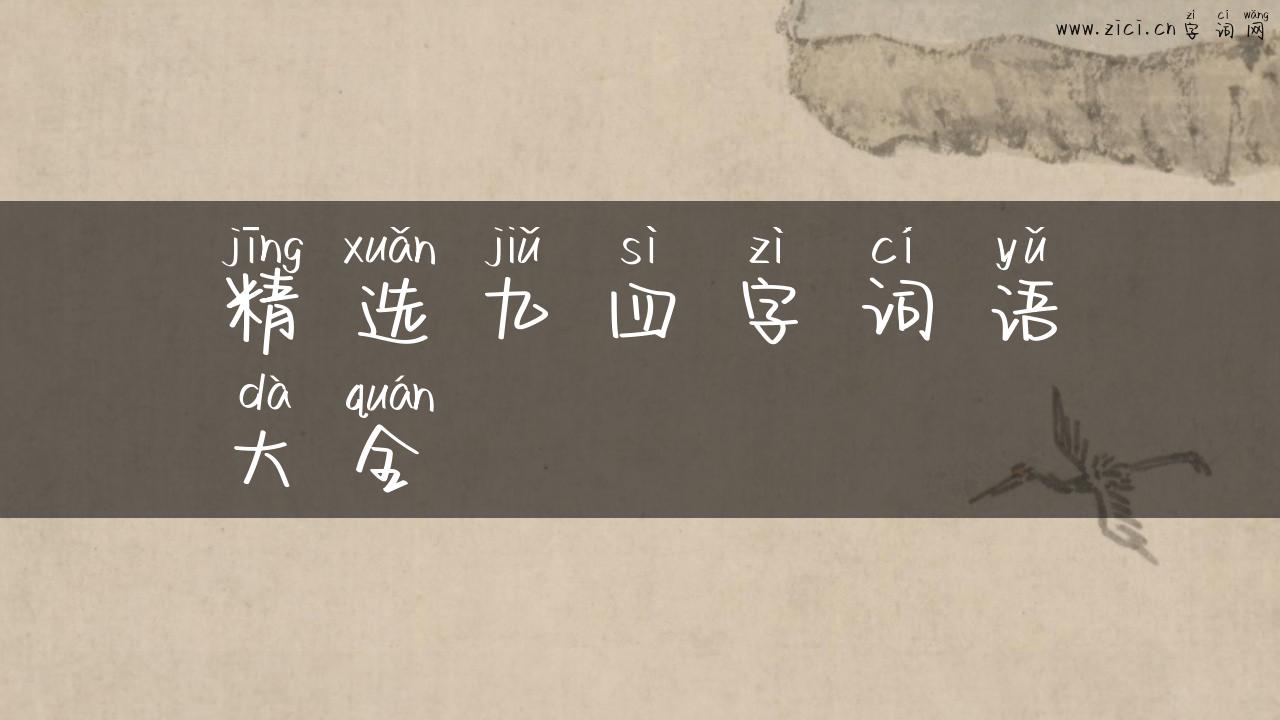 zì cí wǎng
www.zici.cn 字词网
jīng xuǎn jiǔ sì zì cí yǔ
精选九四字词语
dà quán
大全